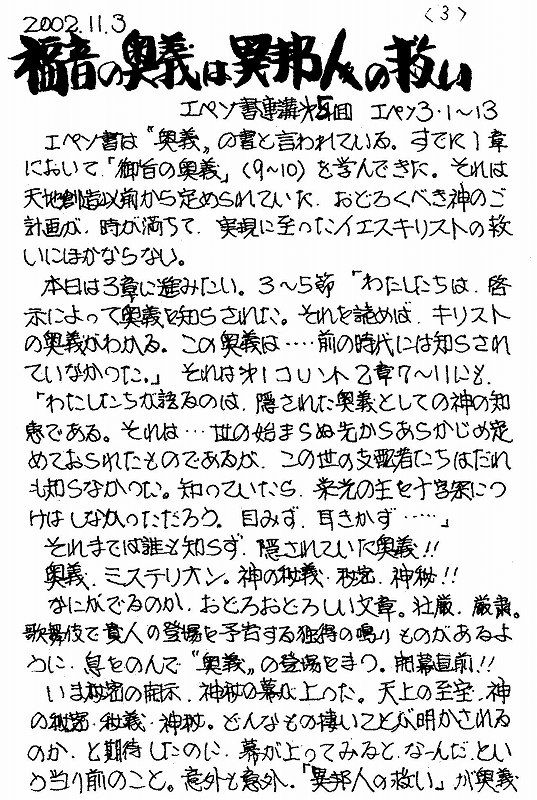 2002.11.3 〈3〉
福音の奥義は異邦人の救い
エペソ書連講才5回 エペソ3・1〜13
エペソ書は〝奥義〟の書と言われている。すでに1章
において「御旨の奥義」(9〜10)を学んできた。それは
天地創造以前から定められていた、おどろくべき神のご
計画が、時が満ちて、実現に至ったイエスキリストの救
いにほかならない。
本日は3章に進みたい。3〜5節「わたしたちは、啓
示によって奥義を知らされた。それを読めば、キリスト
の奥義がわかる。この奥義は‥‥前の時代には知らされ
ていなかった。」それは才1コリント2章7〜11にも、
「わたしたちが語るのは、隠された奥義としての神の知
恵である。それは‥・世の始まらぬ先からあらかじめ定
めておられたものであるが、この世の支配者たちはだれ
も知らなかった。知っていたら、栄光の主を十字架につ
けはしなかっただろう。目みず、耳きかず‥‥‥」
それまでは誰も知らず、隠されていた奥義!!
奥義、ミステリオン。神の秘義・秘密、神秘!!
なにがでるのか、おどろおどろしい文章。壮厳、厳粛。
歌舞伎で貴人の登場を予告する独得の鳴りものがあるよ
うに、息をのんで〝奥義〟の登場をまつ。開幕直前!!
いま秘密の開示、神秘の幕が上った。天上の至宝、神
の秘密・秘義・神秘。どんなもの凄いことが明かされる
のか、と期待したのに、幕が上ってみると、なーんだ、とい
う当り前のこと。意外も意外、「異邦人の救い」が奥義